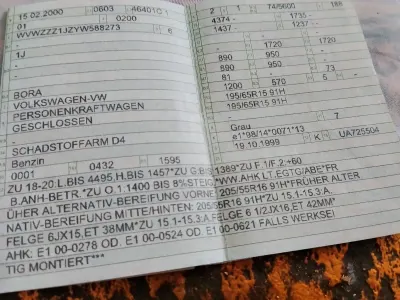 15.02.2000 0603 464010
01 0200
WVWZZZ1JZYW588273 6
-
1J
-
BORA
VOLKSWAGEN-VW
PERSONENKRAFTWAGEN
GESCHLOSSEN
-
SCHADSTOFFARM D4
Benzin
0001 0432 1595
2 1 74/5600 188
4374 - 1735 -
1437 - 1237 -
- 1720 1720
890 950 -
890 950 -
81 - - 73
1200 570 5 -
195/65R15 91H
195/65R15 91H
-
-
- 7
Grau
e1*98/14*0071*13
19.10.1999 K UA725504
*ZU 18-20:L.BIS 4495,H.BIS 1457*ZU G.BIS 1389*ZU F.1/F.2:+60
B.ANH-BETR.*ZU O.1:1400 BIS 8%STEIG.*WW.AHK LT.EGTG/ABE*FR
ÜHER ALTERNATIV-BEREIFUNG VORNE: 205/55R16 91H*FRÜHER ALTER
NATIV-BEREIFUNG MITTE/HINTEN: 205/55R16 91H*ZU 15.1-15.3:A.
FELGE 6JX15,ET 38MM*ZU 15.1-15.3:A.FELGE 6 1/2JX16,ET 42MM*
AHK: E1 00-0278 OD. E1 00-0524 OD.E1 00-0621 FALLS WERKSEI
TIG MONTIERT***